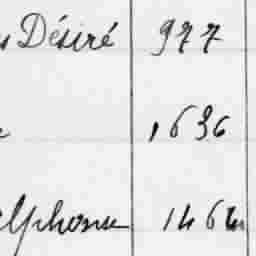 s Désiré 977
1636
Alphonse 1462